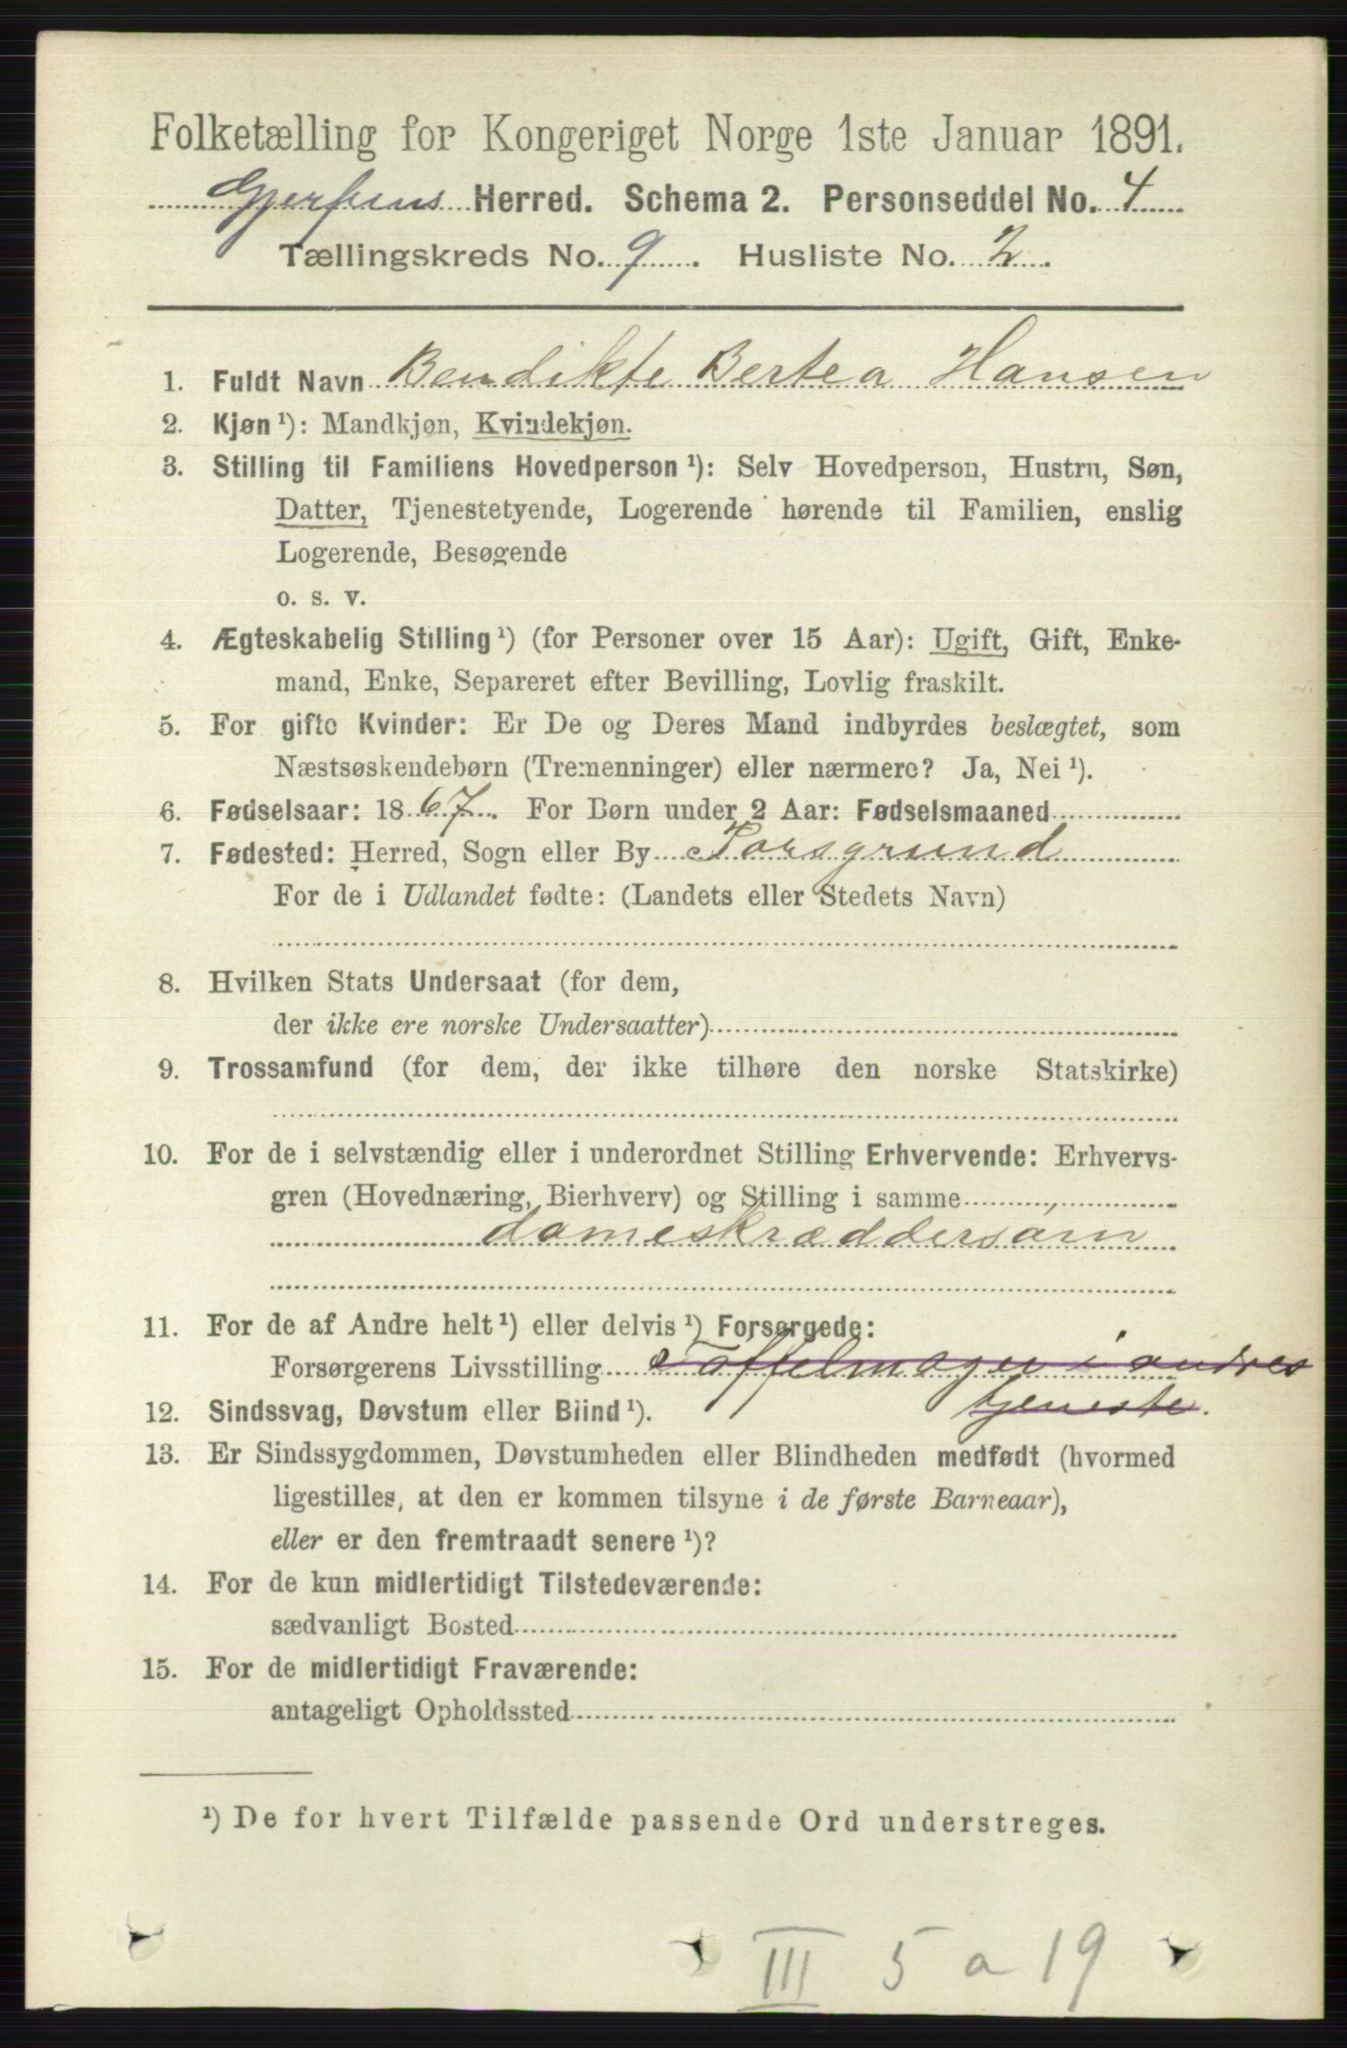 Folketælling for Kongeriget Norge 1ste Januar 1891.
Gjerpens Herred. Schema 2. Personseddel No. 4
Tællingskreds No. 9. Husliste No. 2.
1. Fuldt Navn Bendikte Bertea Hansen
2. Kjøn ¹): Mandkjøn, Kvindekjøn.
3. Stilling til Familiens Hovedperson ¹): Selv Hovedperson, Hustru, Søn,
Datter, Tjenestetyende, Logerende hørende til Familien, enslig
Logerende, Besøgende
o. s. v.
4. Ægteskabelig Stilling ¹) (for Personer over 15 Aar): Ugift, Gift, Enke-
mand, Enke, Separeret efter Bevilling, Lovlig fraskilt.
5. For gifte Kvinder: Er De og Deres Mand indbyrdes beslægtet, som
Næstsøskendebørn (Tremenninger) eller nærmere? Ja, Nei ¹).
6. Fødselsaar: 1867. For Børn under 2 Aar: Fødselsmaaned
7. Fødested: Herred, Sogn eller By Porsgrund
For de i Udlandet fødte: (Landets eller Stedets Navn)
8. Hvilken Stats Undersaat (for dem,
der ikke ere norske Undersaatter)
9. Trossamfund (for dem, der ikke tilhøre den norske Statskirke)
10. For de i selvstændig eller i underordnet Stilling Erhvervende: Erhvervs-
gren (Hovednæring, Bierhverv) og Stilling i samme
dameskræddersøm
11. For de af Andre helt ¹) eller delvis ¹) Forsørgede:
Forsørgerens Livsstilling Tøffelmager i andres
12. Sindssvag, Døvstum eller Blind ¹). tjeneste.
13. Er Sindssygdommen, Døvstumheden eller Blindheden medfødt (hvormed
ligestilles, at den er kommen tilsyne i de første Barneaar),
eller er den fremtraadt senere ¹)?
14. For de kun midlertidigt Tilstedeværende:
sædvanligt Bosted
15. For de midlertidigt Fraværende:
antageligt Opholdssted
¹) De for hvert Tilfælde passende Ord understreges.
III 5 a 19